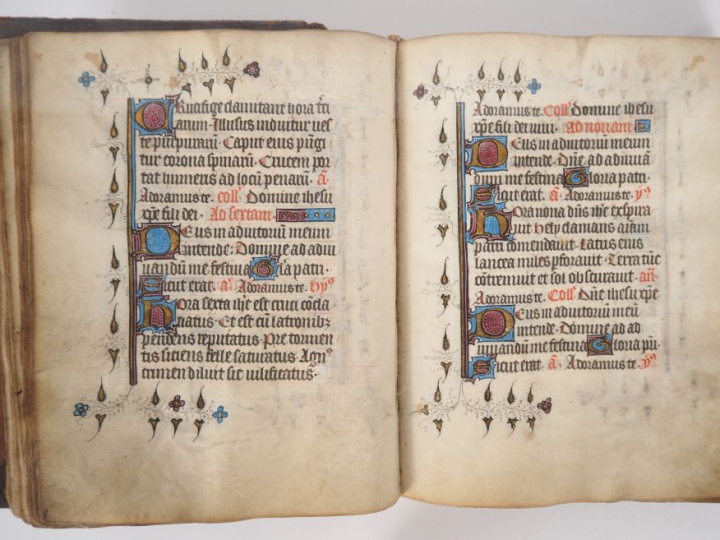 Crucifige clamitant hora terci
arum · Illusus induitur ves
te purpurarum · Caput eius pūgi
tur corona spinarū · Crucem por
tat humeris ad locū penarū · a̅
Adoramus te · coll̅ · Domine ihesu
xp̅e fili dei · Ad sextam ·
Deus in adiutorium meum
intende : Domine ad adiu
uandū me festina Gl̅ia patri ·
Sicut erat · a̅ · Adoramus te · hy⁹
Hora sexta ih̅c est cruci cōcla
uatus · Et est cū latronibꝫ
pendens reputatus · Pre tormen
tis siciens felle saturatus · Agn⁹
crimen diluit sic uilificatus ·
Adoramus te · Coll̅ · Domine ihesu
xp̅e fili dei uiui · Ad nonam
Deus in adiutorium meum
intende · Dn̅e ad adiuuā
dum me festina Gloria patri ·
Sicut erat · a̅ · Adoramus te · y⁹
Hora nona dn̅s ih̅c expira
uit hely clamans aīam
patri comendauit · Latus eius
lancea miles pforauit · Terra tūc
cōtremuit et sol obscurauit · an̅
Adoramus te · Coll̅ · Dn̅e ihesu xp̅e
Deus in adiutorium meū
intende · Domine ad ad
iuuandū me festina Gloria p̅ri ·
Sicut erat · a̅ · Adoramus te · y⁹